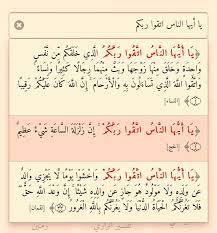 يا أيها الناس اتقوا ربكم
يَا أَيُّهَا النَّاسُ اتَّقُوا رَبَّكُمُ الَّذِي خَلَقَكُم مِّن نَّفْسٍ
وَاحِدَةٍ وَخَلَقَ مِنْهَا زَوْجَهَا وَبَثَّ مِنْهُمَا رِجَالًا كَثِيرًا وَنِسَاءً
وَاتَّقُوا اللَّهَ الَّذِي تَسَاءَلُونَ بِهِ وَالْأَرْحَامَ إِنَّ اللَّهَ كَانَ عَلَيْكُمْ رَقِيبًا
[النساء]
يَا أَيُّهَا النَّاسُ اتَّقُوا رَبَّكُمْ إِنَّ زَلْزَلَةَ السَّاعَةِ شَيْءٌ عَظِيمٌ
[الحج]
يَا أَيُّهَا النَّاسُ اتَّقُوا رَبَّكُمْ وَاخْشَوْا يَوْمًا لَّا يَجْزِي وَالِدٌ
عَن وَلَدِهِ وَلَا مَوْلُودٌ هُوَ جَازٍ عَن وَالِدِهِ شَيْئًا إِنَّ وَعْدَ اللَّهِ حَقٌّ فَلَا
تَغُرَّنَّكُمُ الْحَيَاةُ الدُّنْيَا وَلَا يَغُرَّنَّكُم بِاللَّهِ الْغَرُورُ [لقمان]